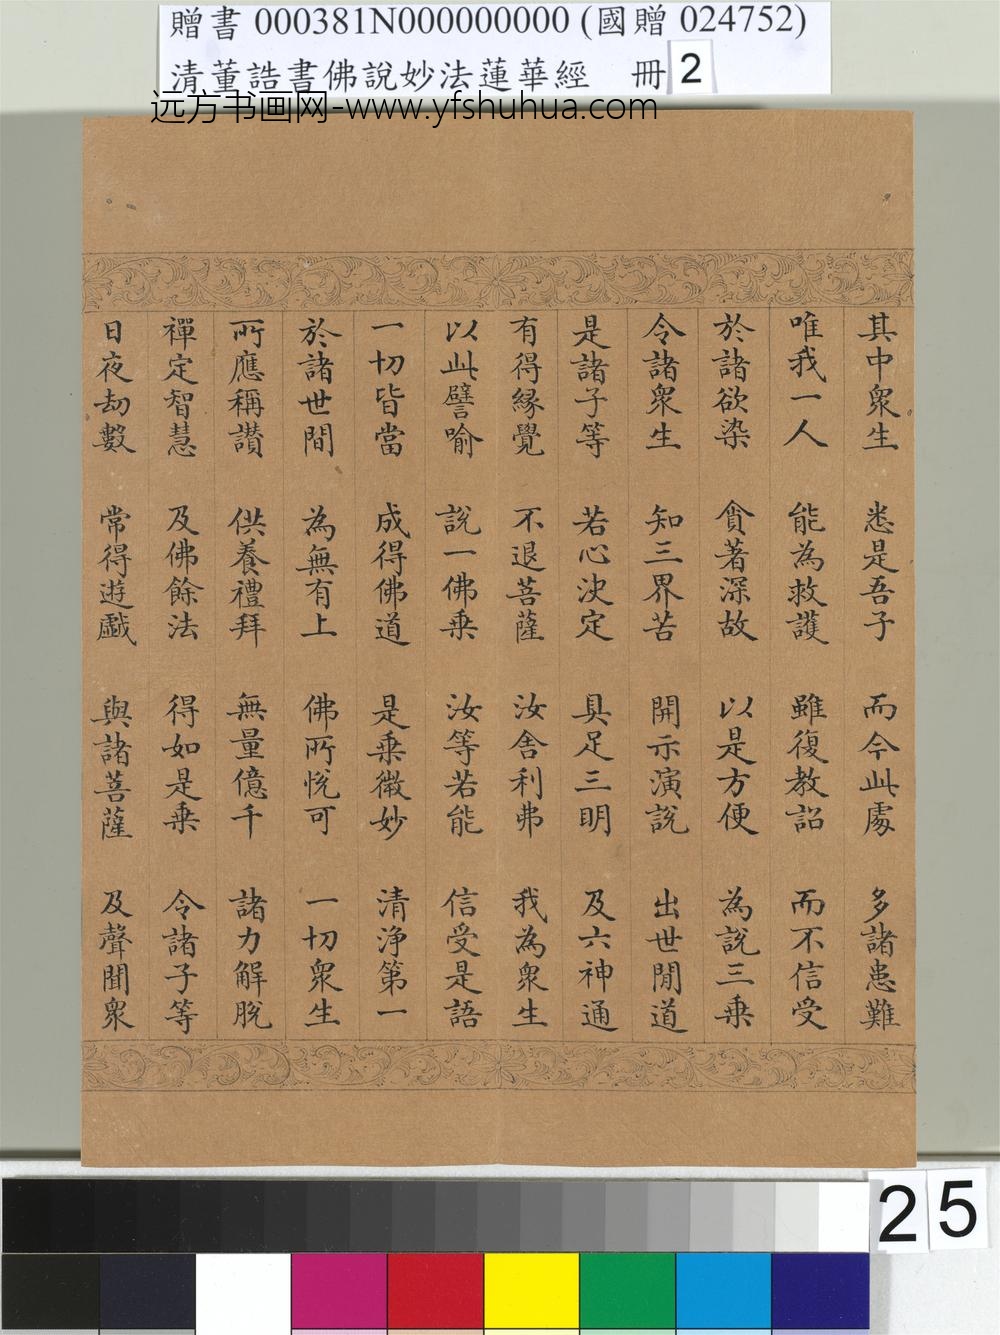 贈書 000381N000000000 (國贈 024752)
清董誥書佛說妙法蓮華經 冊 2
远方书画网-www.yfshuhua.com
其中衆生 悉是吾子 而今此處 多諸患難
唯我一人 能為救護 雖復教詔 而不信受
於諸欲染 貪著深故 以是方便 為說三乗
令諸衆生 知三界苦 開示演說 出世間道
是諸子等 若心决定 具足三明 及六神通
有得縁覺 不退菩薩 汝舍利弗 我為衆生
以此譬喻 說一佛乗 汝等若能 信受是語
一切皆當 成得佛道 是乗微妙 清淨第一
於諸世間 為無有上 佛所悅可 一切衆生
所應稱讃 供養禮拜 無量億千 諸力解脫
禪定智慧 及佛餘法 得如是乗 令諸子等
日夜劫數 常得遊戲 與諸菩薩 及聲聞衆
25